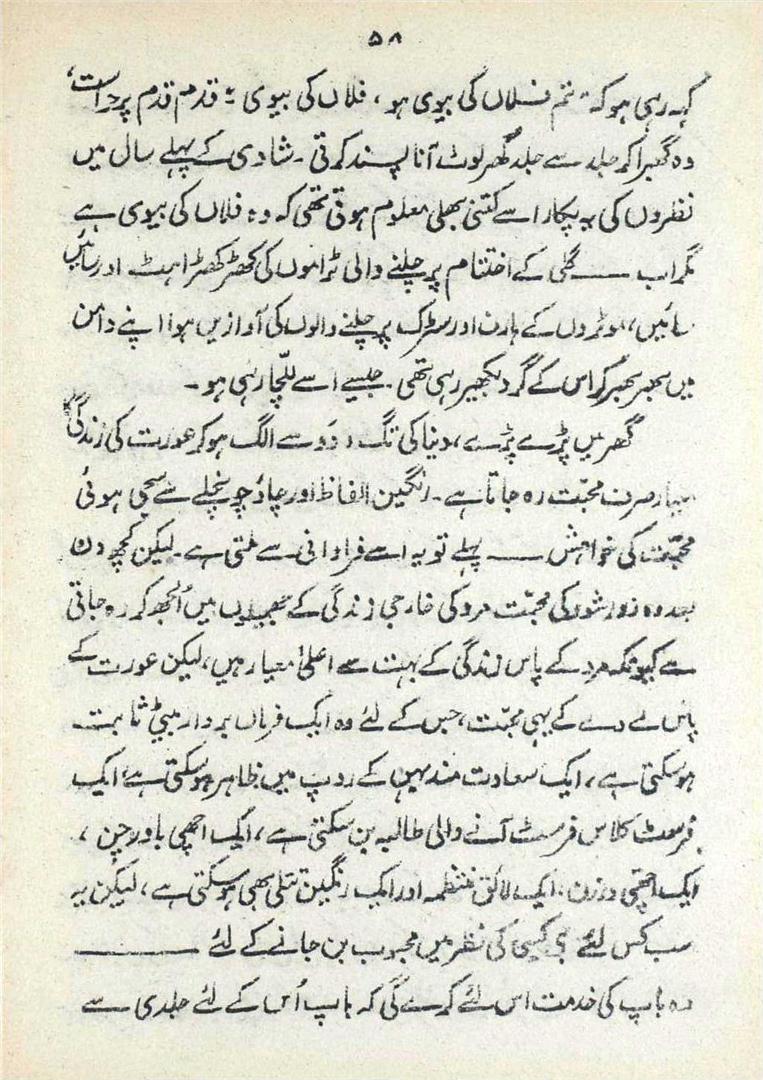 ۵۸
کہہ رہی ہو کہ تم فلاں کی بیوی ہو، فلاں کی بیوی۔ قدم قدم پر حراست،
وہ گھبرا کر جلد سے جلد گھر لوٹ آنا پسند کرتی۔ شادی کے پہلے سال میں
نظروں کی یہ پکار اسے کتنی بھلی معلوم ہوتی تھی کہ وہ فلاں کی بیوی ہے
مگر اب —— گلی کے اختتام پر چلنے والی ٹراموں کی کھڑکھڑاہٹ اور سائیں
سائیں، موٹروں کے ہارن اور سڑک پر چلنے والوں کی آوازیں ہوا اپنے دامن
میں بھر بھر کر اس کے گرد بکھیر رہی تھی۔ جیسے اسے للچا رہی ہو۔
گھر میں پڑے پڑے، دنیا کی تگ و دَو سے الگ ہو کر عورت کی زندگی کا
معیار صرف محبّت رہ جاتا ہے۔ رنگین الفاظ اور چاؤ چونچلے سے سجی ہوئی
محبّت کی خواہش —— پہلے تو یہ اسے فراوانی سے ملتی ہے۔ لیکن کچھ دن
بعد وہ زور شور کی محبّت مرد کی خارجی زندگی کے جھمیلوں میں اُلجھ کر رہ جاتی
ہے کیونکہ مرد کے پاس زندگی کے بہت سے اعلیٰ معیار ہیں، لیکن عورت کے
پاس لے دے کے یہی محبّت، جس کے لئے وہ ایک فرماں بردار بیٹی ثابت
ہو سکتی ہے، ایک سعادت مند بہن کے روپ میں ظاہر ہو سکتی ہے، ایک
فرسٹ کلاس فرسٹ آنے والی طالبہ بن سکتی ہے، ایک اچھی باورچن،
ایک اچھی درزن، ایک لائق منتظمہ اور ایک رنگین تتلی بھی ہو سکتی ہے، لیکن یہ
سب کس لئے؟ کسی کی نظر میں محبوب بن جانے کے لئے ——
وہ باپ کی خدمت اس لئے کرے گی کہ باپ اُس کے لئے جلدی سے